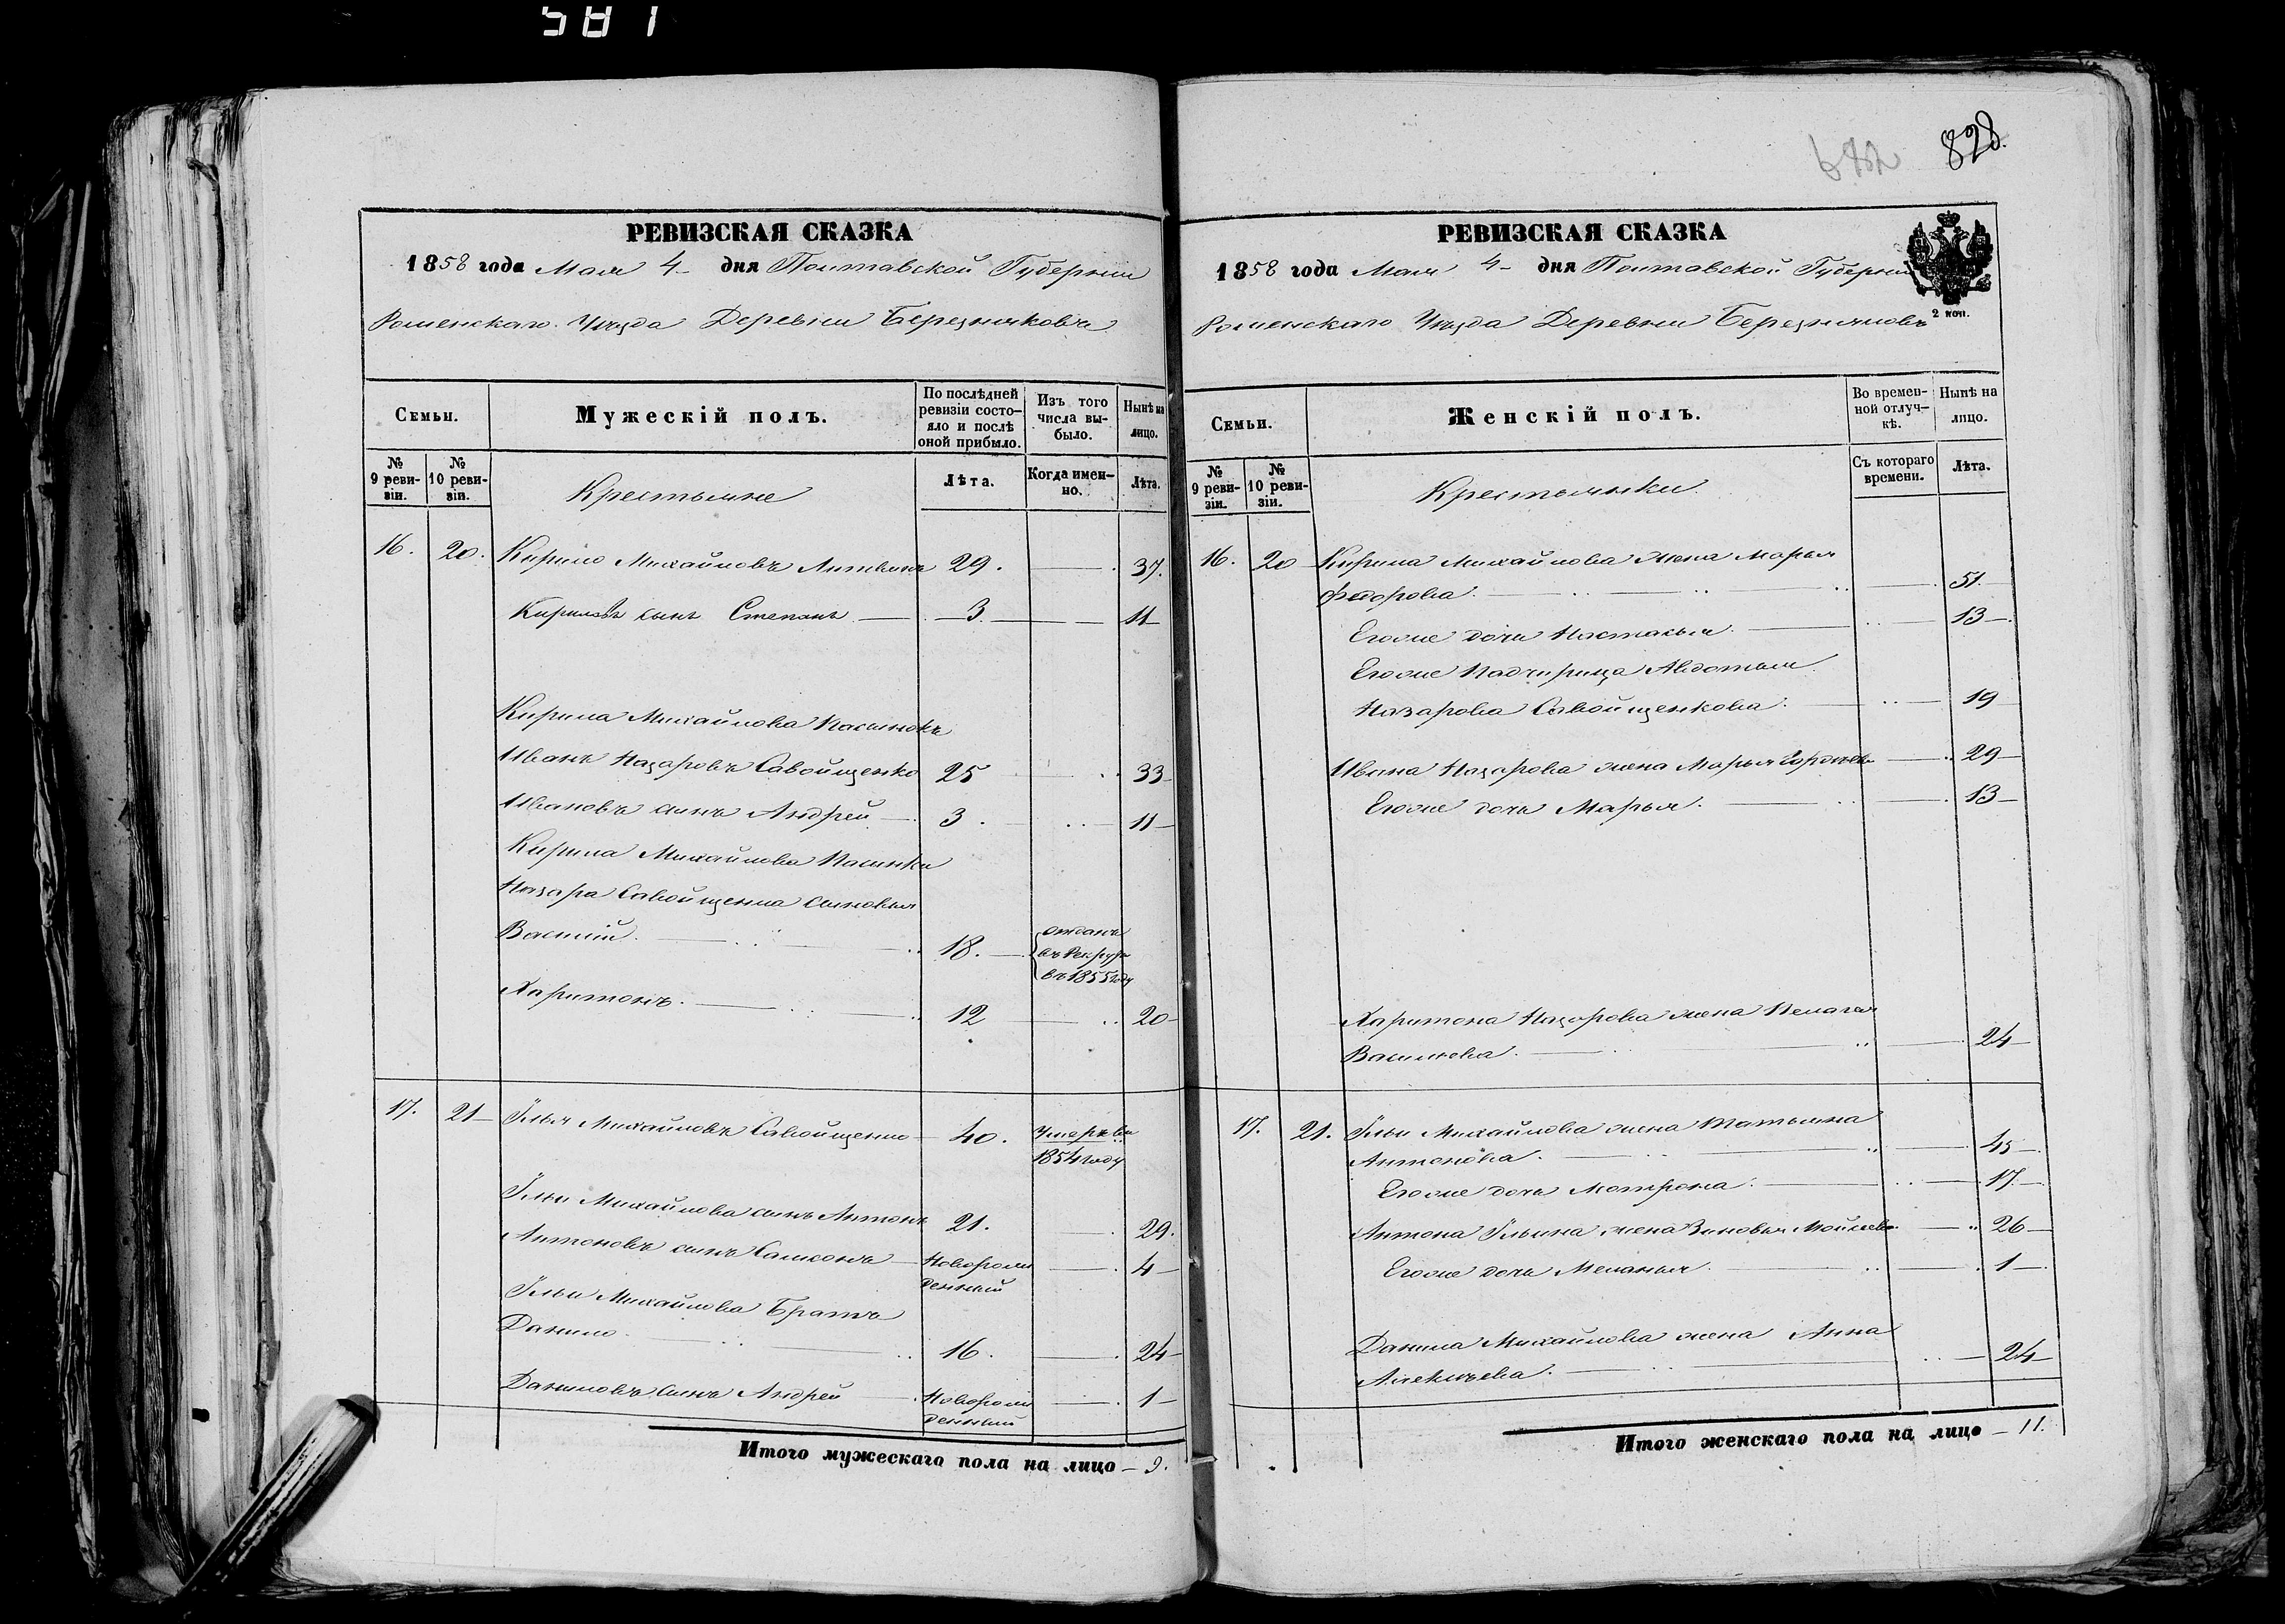 581
РЕВИЗСКАЯ СКАЗКА
1858 года Мая 4 дня Полтавской Губернии
Роменскаго Уѣзда Деревни Березняковъ
Семьи.
Мужескій полъ.
По послѣдней ревизіи состо-
яло и послѣ оной прибыло.
Изъ того числа вы-
было.
Нынѣ на лицо.
№ 9 реви-
зіи.
№ 10 реви-
зіи.
Крестьяне
Лѣта.
Когда имен-
но.
Лѣта.
16. 20. Кирило Михайловъ 29. 37.
Кириловъ сынъ Степанъ 3 11
Кирила Михайлова Пасынокъ
Иванъ Назаровъ Савойщенко 25 33
Ивановъ сынъ Андрей 3. 11
Кирила Михайлова Пасынки
Назара Савойщенка сыновья
Василій. 18. отданъ
въ Рекруты
въ 1855 году
Харитонъ. 12 20
17. 21 Илья Михайловъ Савойщенко 40. Умеръ въ
1854 году
Ильи Михайлова сынъ Антонъ 21. 29.
Антоновъ сынъ Самсонъ Новорож
денный 4
Ильи Михайлова Братъ
Данило 16. 24
Даниловъ сынъ Андрей Новорож
денный 1
Итого мужескаго пола на лицо 9.
828.
РЕВИЗСКАЯ СКАЗКА
1858 года Мая 4 дня Полтавской Губернии
2 коп.
Роменскаго Уѣзда Деревни Березняковъ
Семьи.
Женскій полъ.
Во времен-
ной отлуч-
кѣ.
Нынѣ на лицо.
№ 9 реви-
зіи.
№ 10 реви-
зіи.
Крестьянки
Съ котораго времени.
Лѣта.
16. 20 Кирила Михайлова жена Марья
Федорова. 51.
Егоже дочь Настасья. 13
Егоже Падчерица Авдотья
Назарова Савойщенкова. 19
Ивана Назарова жена Марья 29
Егоже дочь Марья. 13
Харитона Назарова жена Пелагея
Васильева. 24
17. 21. Ильи Михайлова жена Татьяна
Антонова. 45
Егоже дочь Мотрона. 17
Антона Ильина жена Зиновья Мойсеева 26
Егоже дочь Меланья. 1
Данила Михайлова жена Анна
Алексѣева. 24
Итого женскаго пола на лицо 11.